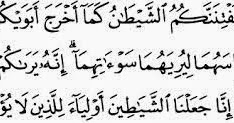 يَفْتِنَنَّكُمُ ٱلشَّيْطَٰنُ كَمَآ أَخْرَجَ أَبَوَيْكُم
لِبَاسَهُمَا لِيُرِيَهُمَا سَوْءَٰتِهِمَآ ۗ إِنَّهُۥ يَرَىٰكُمْ
إِنَّا جَعَلْنَا ٱلشَّيَٰطِينَ أَوْلِيَآءَ لِلَّذِينَ لَا